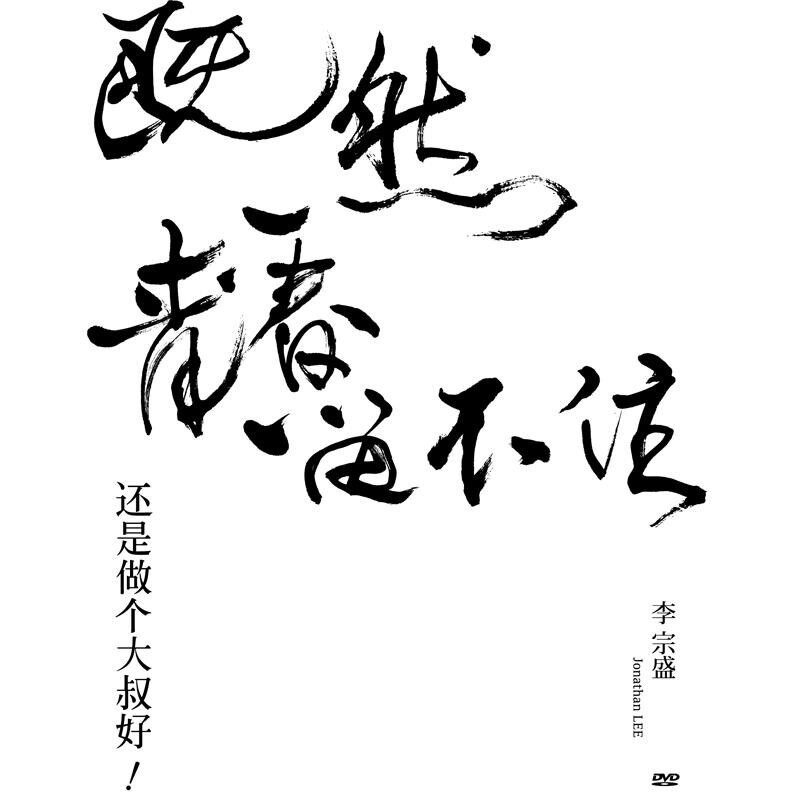 既然
青春
留不住
还是做个大叔好！
李宗盛
Jonathan LEE
DVD